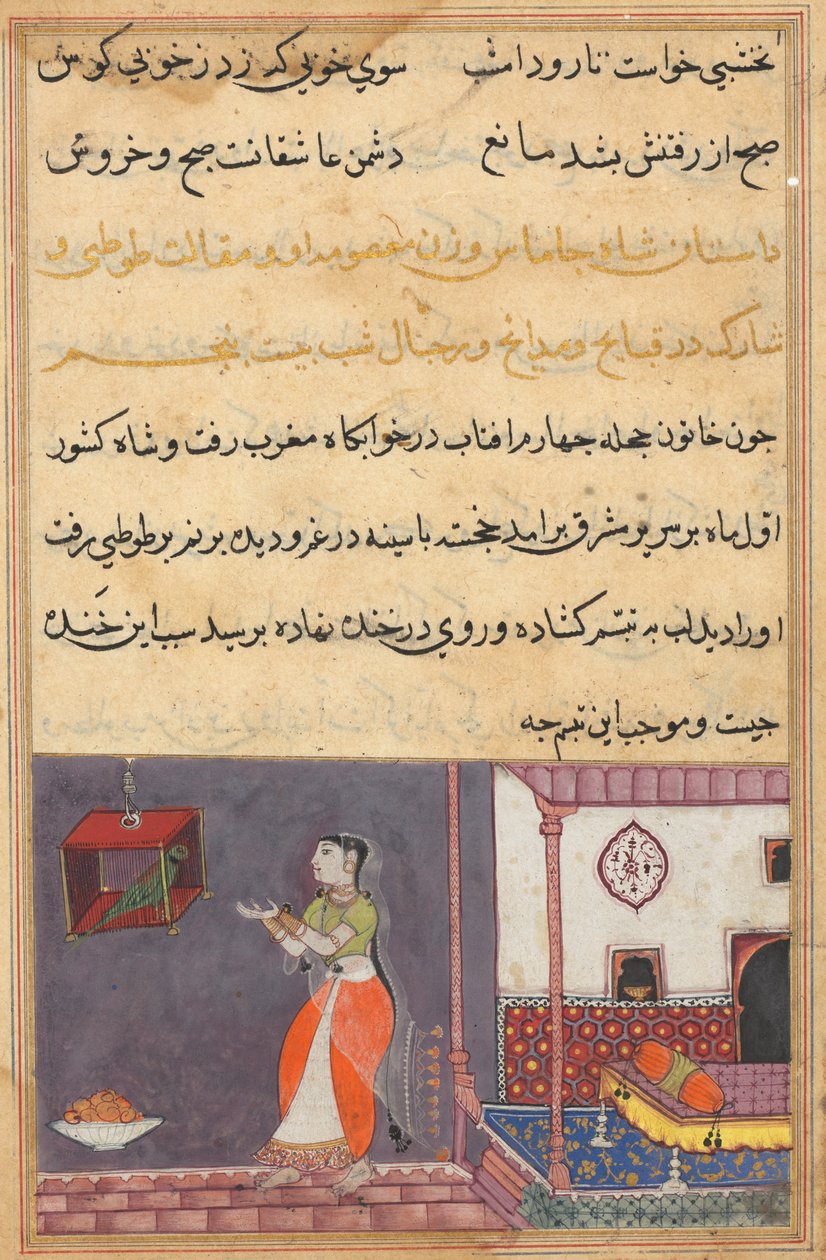 نخشبي خواست تا رود امشب سوي خوبي که زد ز خوبي کوس
صبح از رفتنش بشد مانع دشمن عاشقانت صبح و خروس
داستان شاه جاماس و زن معصوم او و مقالت طوطي و
شارک در قبايح و مدايح و رجال شب بيست پنجم
جون خاتون حجله جهارم افتاب در خوابکاه مغرب رفت و شاه کشور
اول ماه بر سرير مشرق برامد خجسته با سينه در غم و ديده برنم بر طوطي رفت
او را ديد لب به تبسّم کشاده و روي در خنده نهاده برسيد سبب اين خَنده
جيست و موجب اين تبسم جه